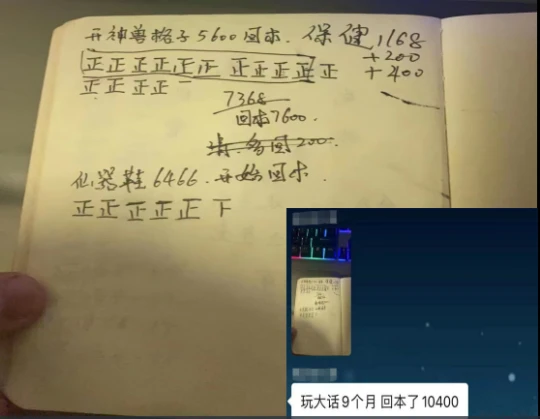 开神兽格子5600回本. 保健1168
+200
正正正正正正 正正正正正
+400
正正正正
7368
回本7600.
多回200.
仙器鞋6466.开始回本.
正正正正正下
玩大话9个月 回本了10400